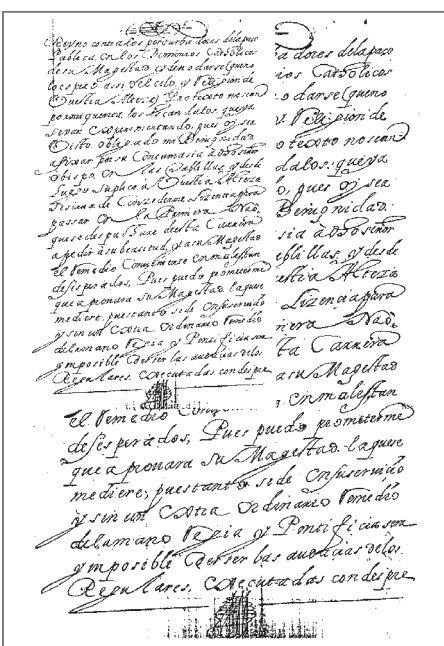 Reyno contra los perturbadores de la paz
Publica, en los Dominios Catolicos
de su Magestad,
los que assi del celo, y Religion de
Vuestra Alteza, y Protectoro no sean
por mi quenta, los escandalos, que ya
se van experimentando, pues oy sea
visto obligado me Benignidad
afixar por su Consumasia a Dº señor
obispo en las tablillas, y desde
luego suplico a Vuestra Alteza
se sirua de Licenciapara
passar en la Primera Nao,
que se despachare desta Carrera
a pedir a su beatitud, y a su Magestad
el Remedio Combeniente en malestan
desesperados, Pues puedo prometerme
que aprouara su Magestad la que se
mediere, pues tanto se de en su seruicio
y sin un extraordinario Remedio
de la mano Regia y Pontificia sera
ymposible
Regulares, executadas con despre
dores de la paz
ios Catolicos
o darse Queno
y Religion de
otectoro no sean
dalos, que ya
o, pues oy sea
Benignidad
sia a Dº señor
ablillas, y desde
estra Alteza
Lizencia para
mera Nao,
ta Carrera
a su Magestad
en malestan
el Remedio
desesperados, Pues puedo prometerme
que aprouara su Magestad la que se
mediere, pues tanto se de en su seruicio
y sin un extraordinario Remedio
de la mano Regia y Pontificia sera
ymposible
Regulares, executadas con despre